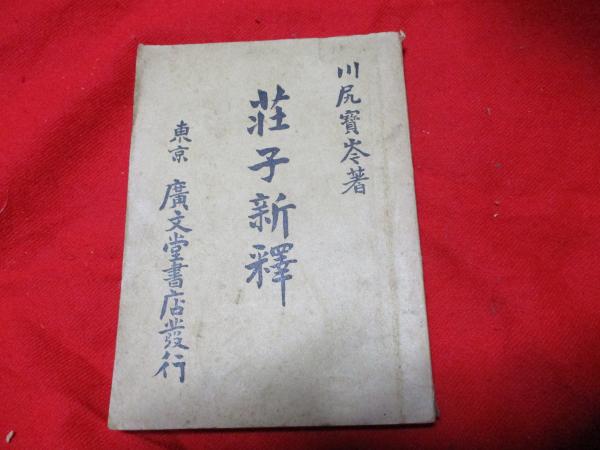 川尻寶岑著
莊子新釋
東京 廣文堂書店發行